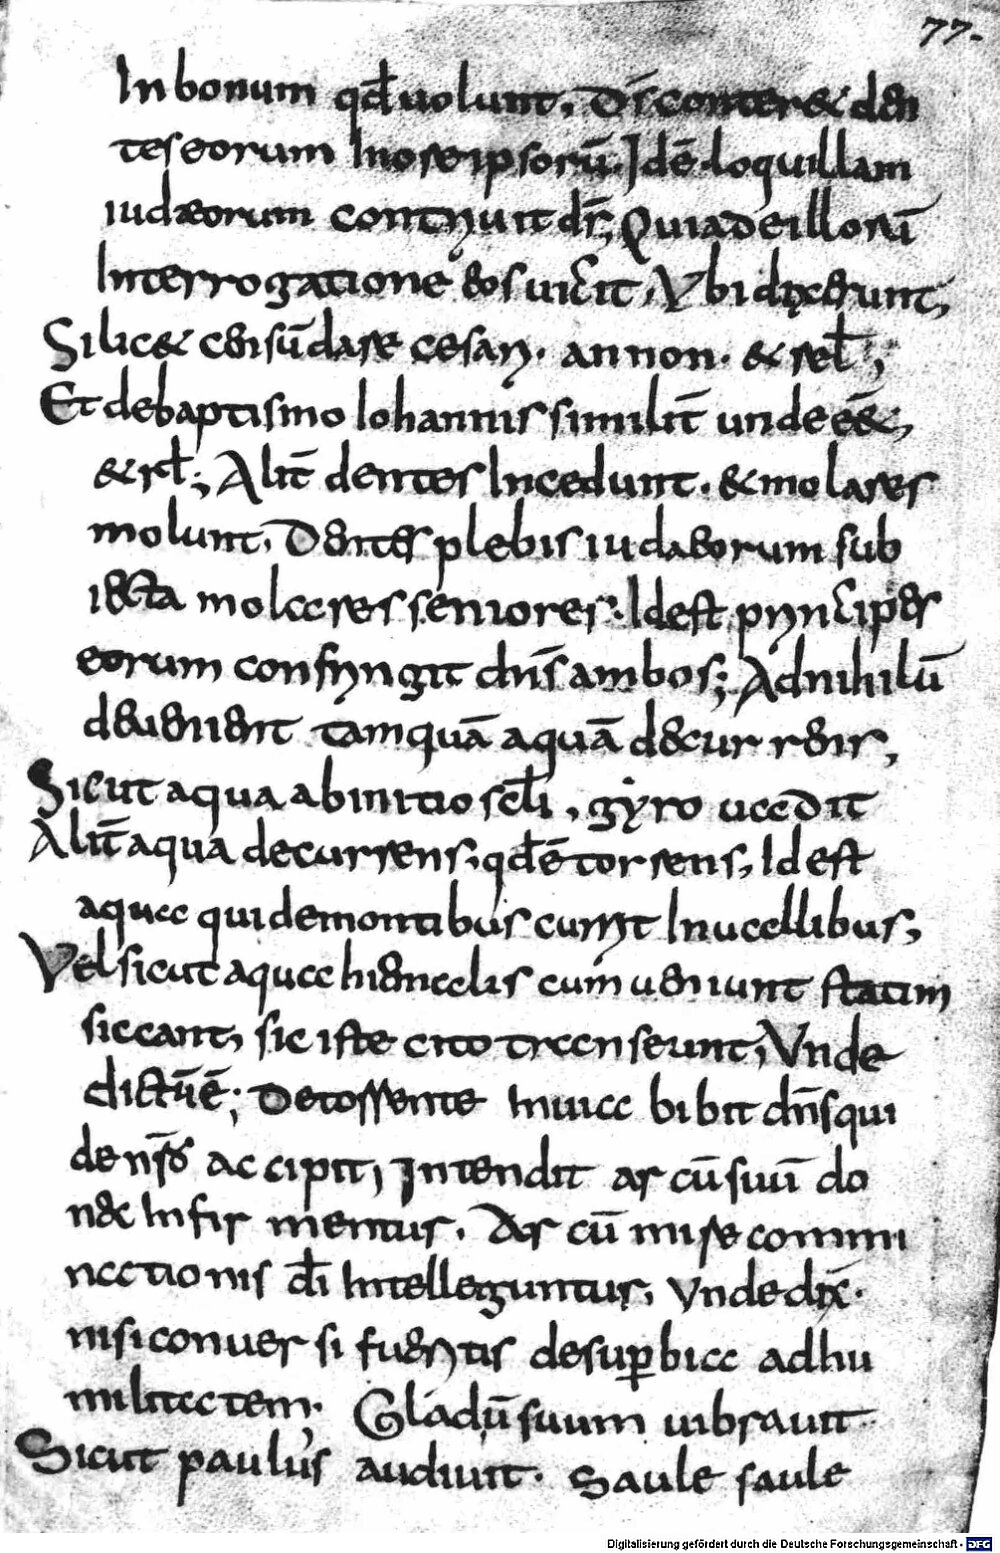 77.
In bonum qđ uolunt, Dr̄ conter& den
tes eorum In ore ipsorū. Idē loquillam
iudæorum contriuit dn̄s, Quia de illorū
Interrogatione eos uicit, Vbi dixerunt,
Si lic& censū dare cesari. an non. & rel̄;
Et de baptismo Iohannis similit̄ unde eēt,
& rl̄; Alit̄ dentes Incedunt. & molares
molunt, Dentes plebis iudaeorum sub
iecta molares seniores. Idest principes
eorum confringit dn̄s ambos; Ad nihilū
deuenient tamquā aquā decurrens,
Sicut aqua ab initio scl̄i, gyro uadit
Alit̄ aqua decurrens, qđ ē torrens, Idest
aquae qui de montibus currit In uallibus,
Vel sicut aquae hiemalis cum ueniunt statim
siccant, sic iste cito transeunt, Vnde
dictū ē; De torrente In uia bibit dn̄s qui
de nr̄o accipit, Intendit arcū suū do
nec Infirmentur. Arcū miserecommi
nationis dī Intelleguntur, Vnde dix̄.
nisi conuersi fueritis de suꝑbia ad hu
militatem. Gladiū suum uibrauit
Sicut paulus audiuit. Saule saule
Digitalisierung gefördert durch die Deutsche Forschungsgemeinschaft - DFG